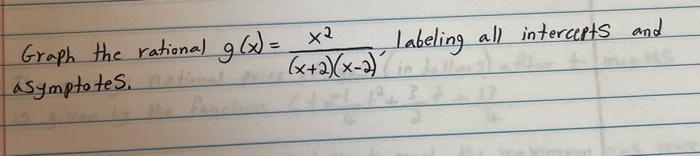 Graph the rational g(x) = x²/((x+2)(x-2)), labeling all intercepts and
asymptotes.